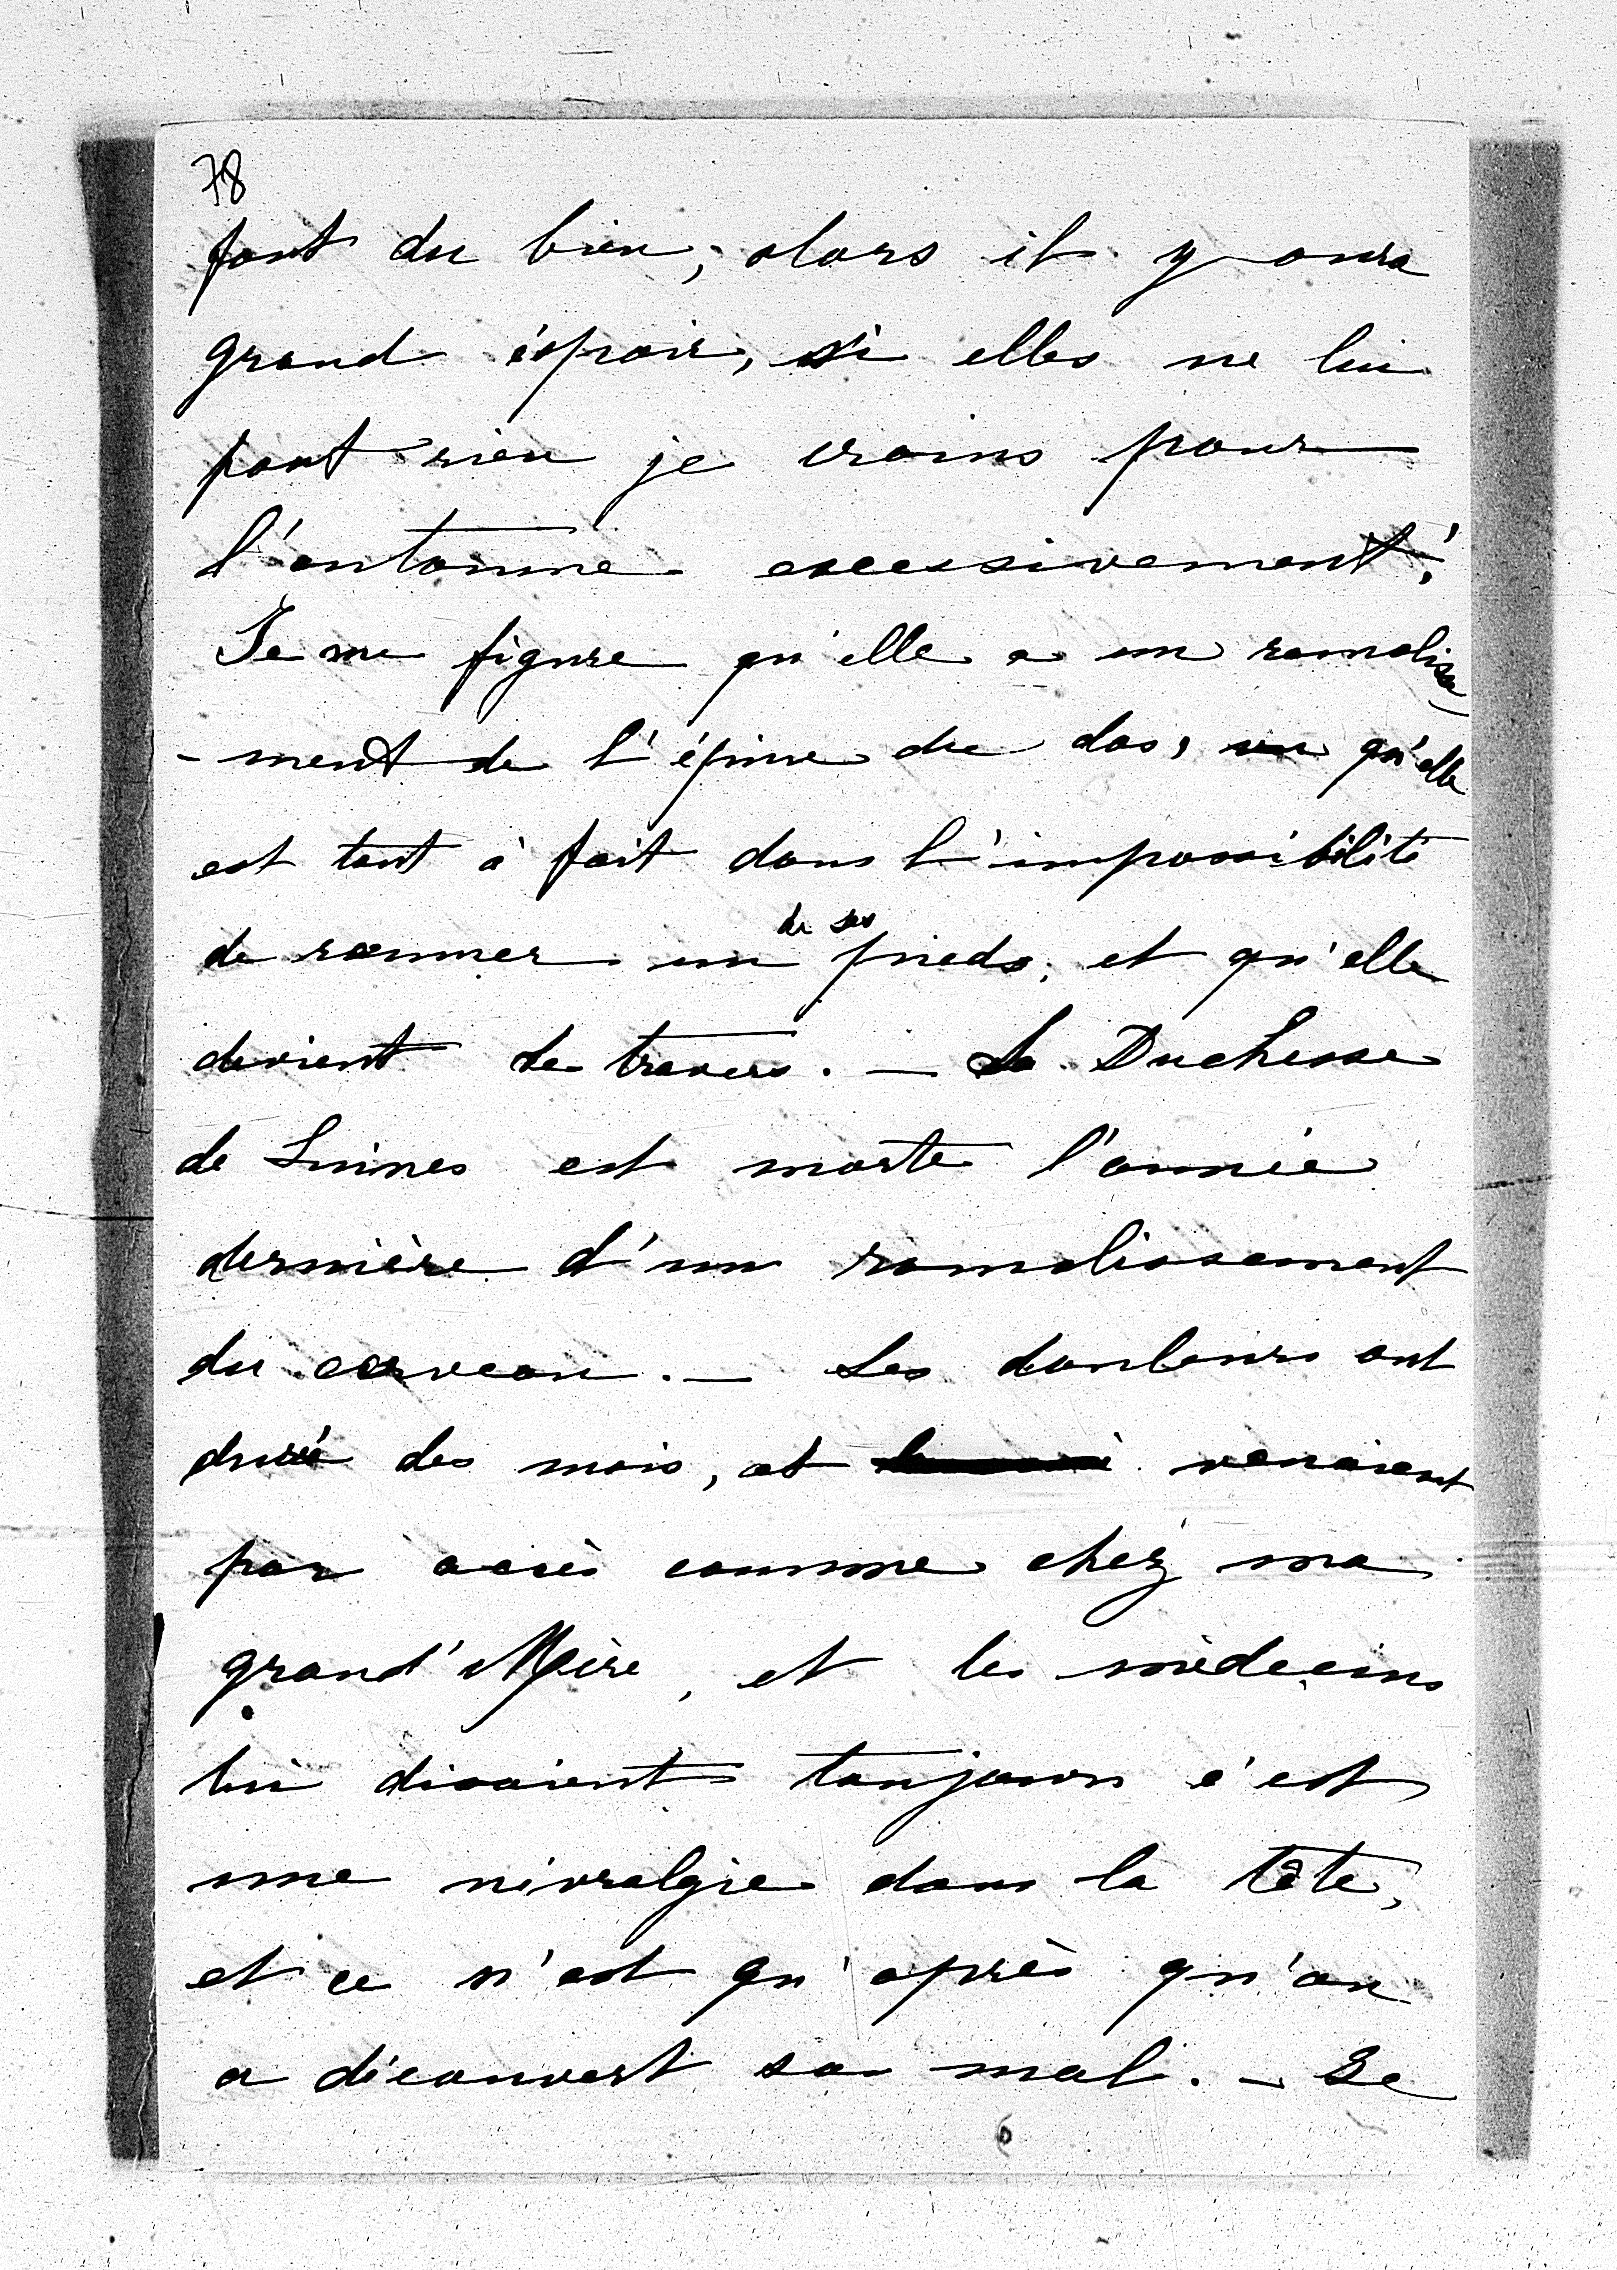 78
font du bien, alors il y aura
grand éspoir, si elles ne lui
font rien je crains pour
l'automne excessivement.
Je me figure qu'elle a un ramolisse
-ment de l'épine du dos, vu qu'elle
est tout à fait dans l'impossibilité
de remuer un de ses pieds, et qu'elle
devient de travers. — La Duchesse
de Luines est morte l'année
dernière d'un ramolissement
du cerveau. — Les douleurs ont
duré des mois, et venaient
par accès comme chez ma
grand'Mère, et les médecins
lui disaient toujours c'est
une névralgie dans la tête,
et ce n'est qu'après qu'on
a découvert son mal. — Le